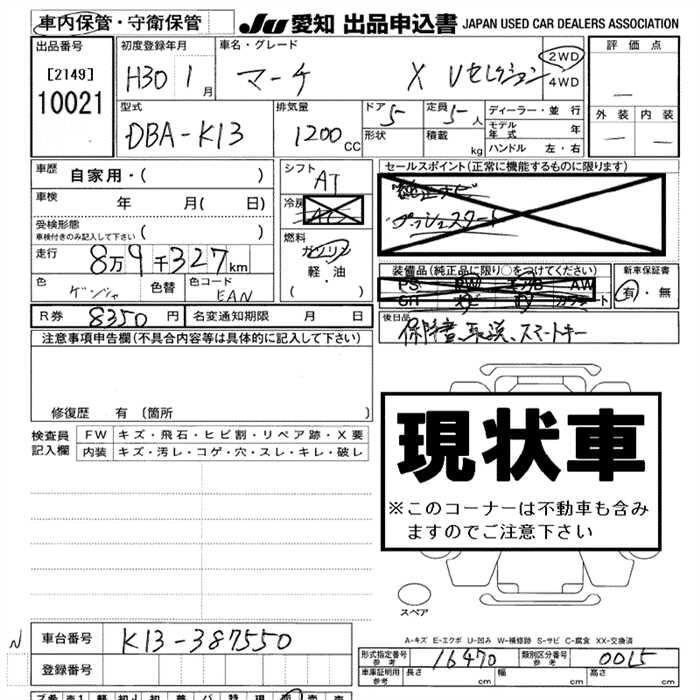 車内保管・守衛保管 JU 愛知 出品申込書 JAPAN USED CAR DEALERS ASSOCIATION
出品番号 初度登録年月 車名・グレード 評価点
[2149] H30 1月 マーチ X Vセレクション 2WD
4WD —
10021 型式 排気量 ドア 定員 ディーラー・並行 外装 内装
DBA-K13 1200CC 5 5人 モデル年式 年 — —
形状 積載 kg ハンドル 左・右
車歴 自家用・( ) シフト AT セールスポイント(正常に機能するものに限ります)
車検 年 月( 日) 冷房 純正ナビ
受検形態 プッシュスタート
車検付きのみ記入して下さい ( ) 燃料
走行 8万9千327km ガソリン 装備品(純正品に限り○をつけてください) 新車保証書
軽・油 PS PW AW 有・無
色 色替 色コード EAN ( )
R券 8350円 名変通知期限 月 日 後日品
保障書、取説、スマートキー
注意事項申告欄(不具合内容等は具体的に記入して下さい)
修復歴 有 〔箇所 〕
現状車
検査員 FW キズ・飛石・ヒビ割・リペア跡・X要
記入欄 内装 キズ・汚レ・コゲ・穴・スレ・キレ・破レ
※このコーナーは不動車も含み
ますのでご注意下さい
スペア
N 車台番号 K13-387550 A-キズ E-エクボ U-凹み W-補修跡 S-サビ C-腐食 XX-交換済
形式指定番号 参考 16470 類別区分番号 参考 0015
登録番号 車庫証明用 参考 長さ 幅 高さ